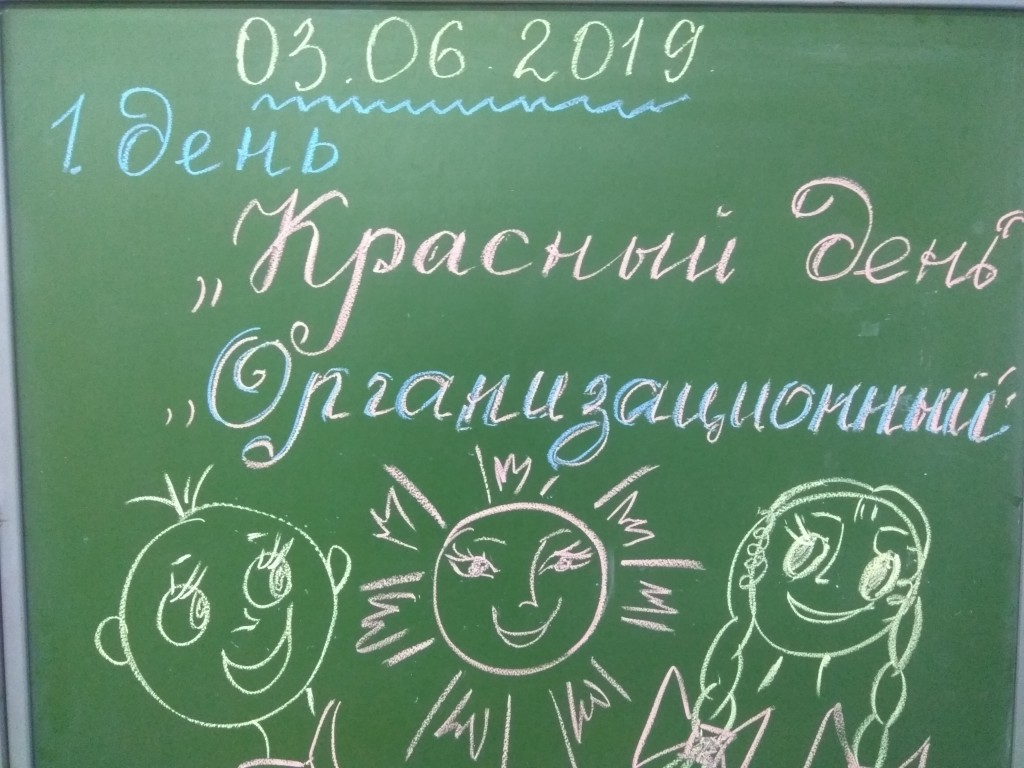 03.06.2019
1. день
„Красный день"
„Организационный"